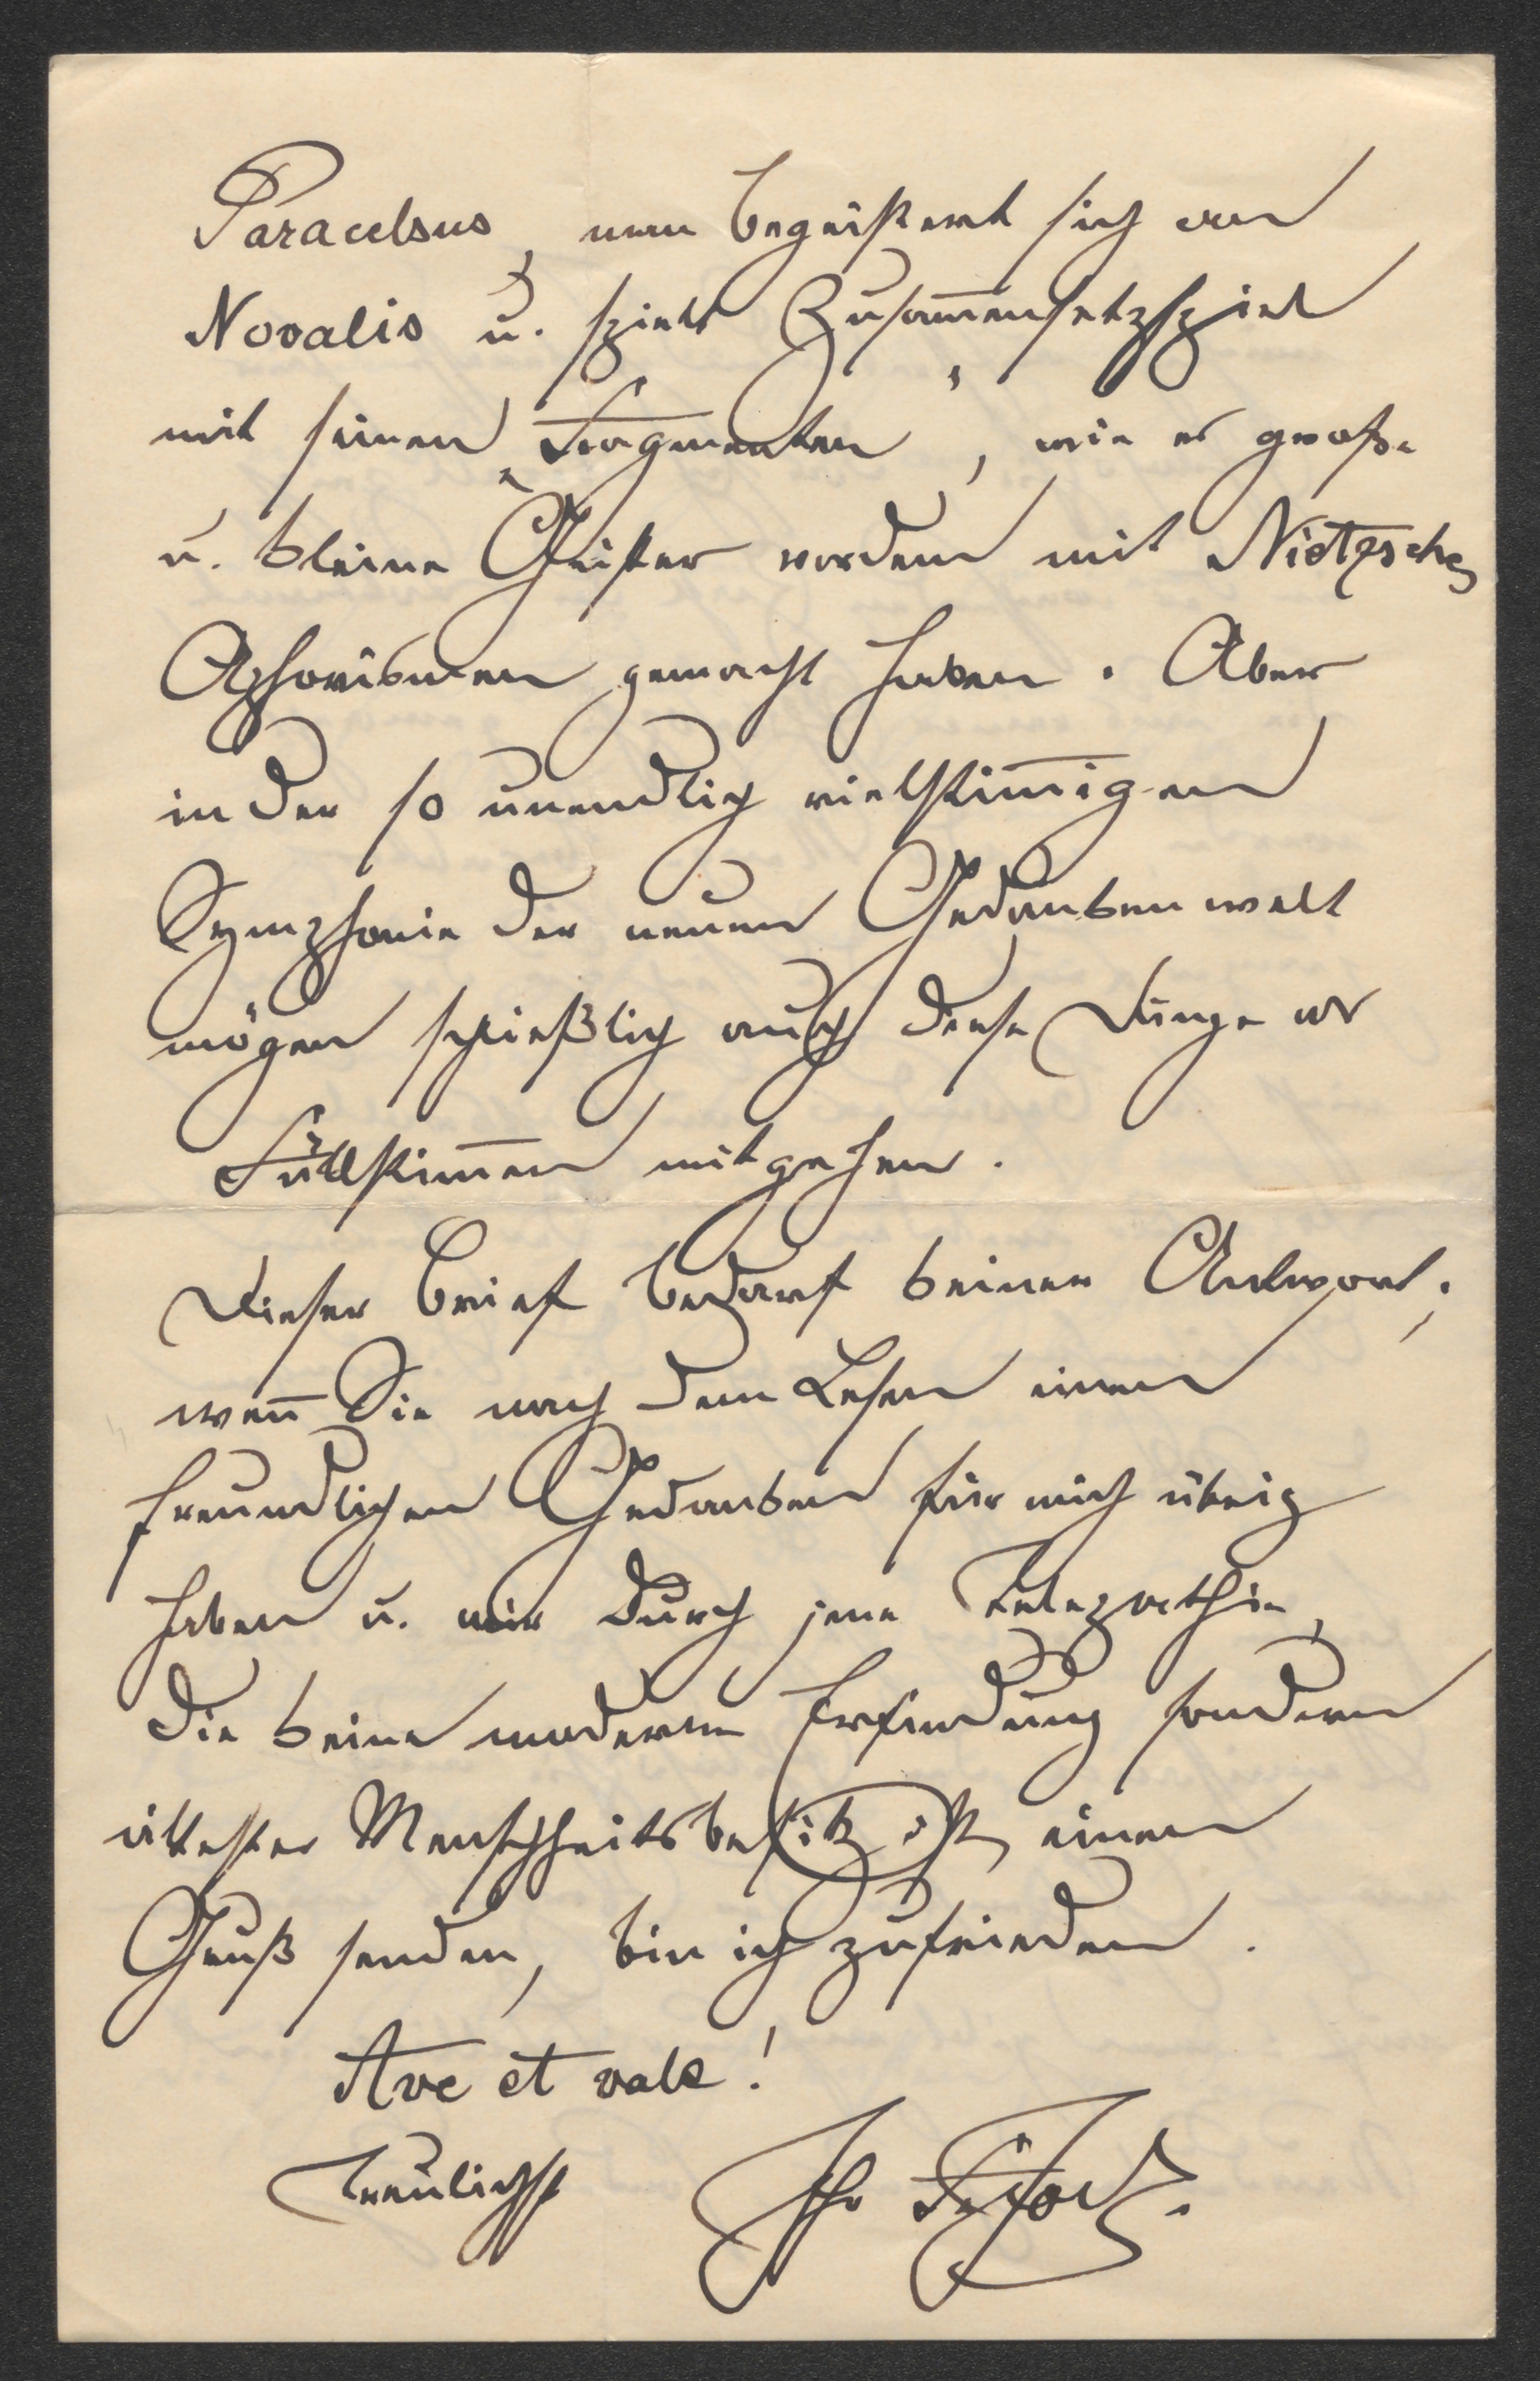 Paracelsus, man begeistert sich an
Novalis u. spielt Zusam̅ensetzspiel
mit seinen „Fragmenten“, wie es große
u. kleine Geister vordem mit Nietzsches
Aphorismen gemacht haben. Aber
in der so unendlich vielstim̅igen
Symphonie der neuen Gedankenwelt
mögen schließlich auch diese Dinge als
Füllstim̅en mitgehen.
Dieser Brief bedarf keiner Antwort;
wen̅ Sie nach dem Lesen einen
freundlichen Gedanken für mich übrig
haben u. mir durch jene Telepathie,
die keine moderne Erfindung sondern
ältester Menschheitsbesitz ist, einen
Gruß senden, bin ich zufrieden.
Ave et vale!
Treulichst Ihr